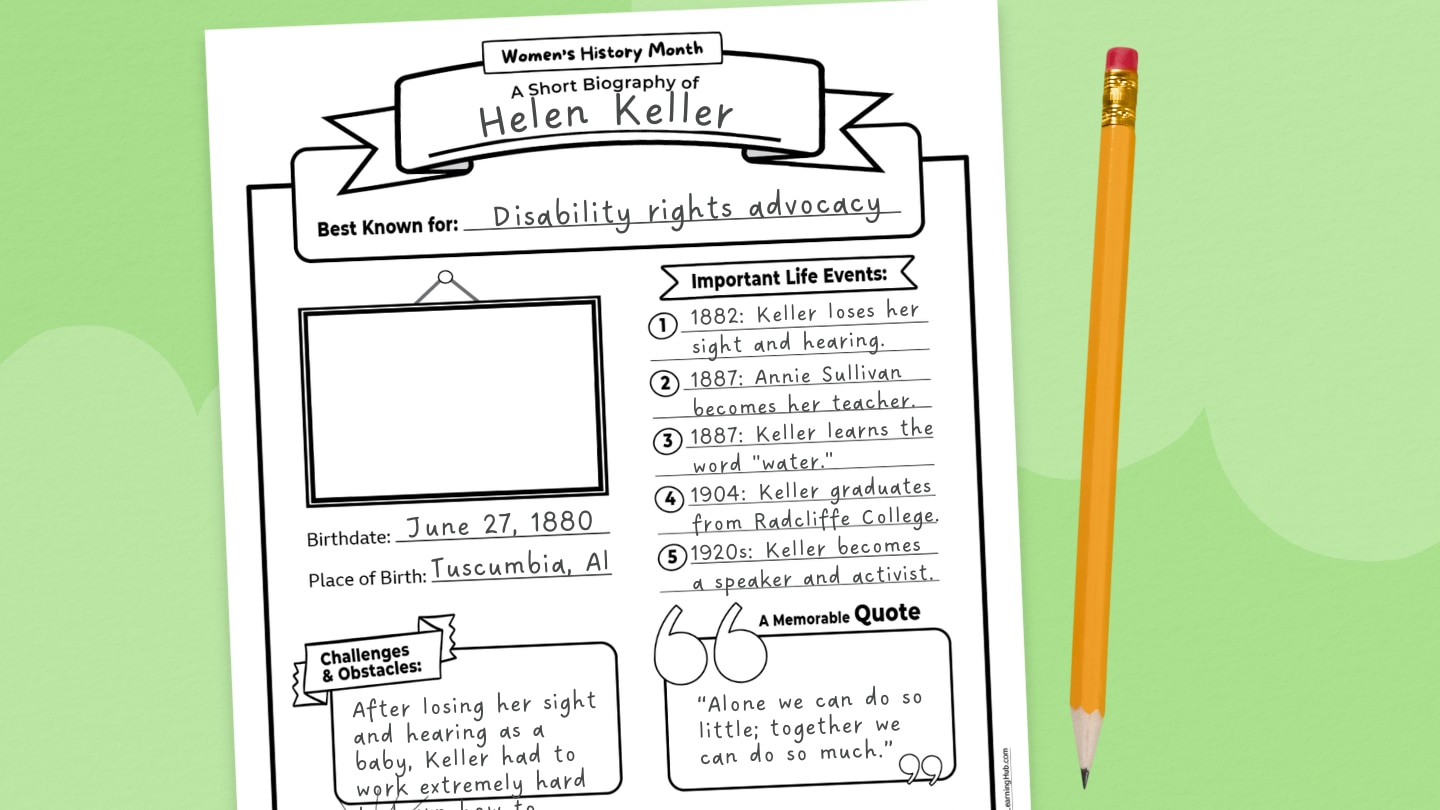 Women's History Month
A Short Biography of
Helen Keller
Best Known for: Disability rights advocacy
Important Life Events:
1 1882: Keller loses her
sight and hearing.
2 1887: Annie Sullivan
becomes her teacher.
3 1887: Keller learns the
word "water."
4 1904: Keller graduates
from Radcliffe College.
5 1920s: Keller becomes
a speaker and activist.
Birthdate: June 27, 1880
Place of Birth: Tuscumbia, Al
Challenges
& Obstacles:
After losing her sight
and hearing as a
baby, Keller had to
work extremely hard
how to
A Memorable Quote
“Alone we can do so
little; together we
can do so much.”
earningHub.com